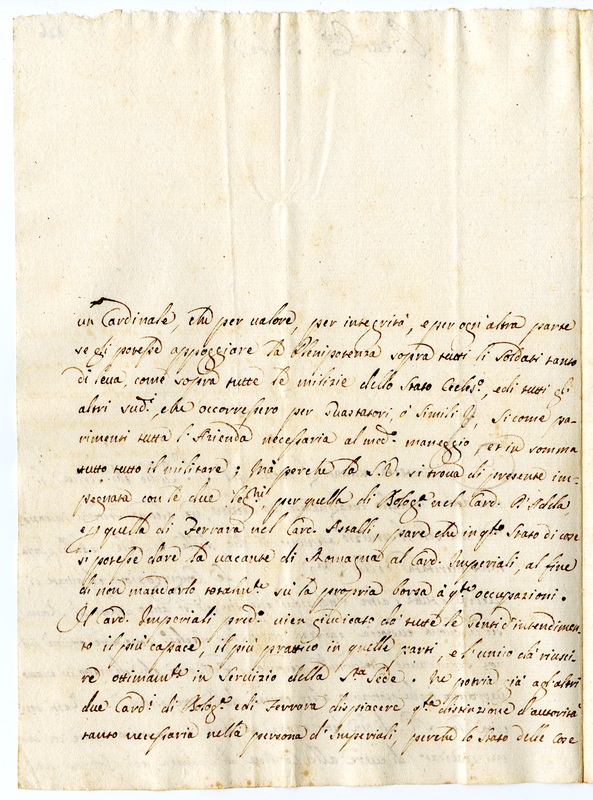 un Cardinale, che per valore, per integrità, e per ogn'altra parte
se gli potesse appoggiare la Plenipotenza sopra tutti li soldati tanto
di leva come sopra tutte le milizie dello Stato Eccles.o, e di tutti gli
altri sud.i, che occorressero per Guastatori, ò simili, si come pa-
rimenti tutta l'Azienda necessaria al mod.o maneggio, et in somma
tutto tutto il militare; Mà perche la S.V. si trova di presente im-
pegnata con le due Leg.ni, per quella di Bolog.a nel Card. d'Adda
e p quella di Ferrara nel Card. Astalli, pare che in q.to Stato di cose
si potesse dare la vacante di Romagna al Card. Imperiali, al fine
di non mandarlo totalm.te sù la propria borsa à q.te occupazioni.
Il Card. Imperiali pred.o vien giudicato da tutte le Genti d'intendimen-
to il più capace, il più prattico in quelle parti, e l'unico da riusci-
re ottimam.te in servizio della S.ta Sede. Ne potria già agl'altri
due Card.i di Bolog.a e di Ferrara dispiacere q.ta distinzione d'autorità
tanto necessaria nella persona d'Imperiali, perche lo Stato delle Cose